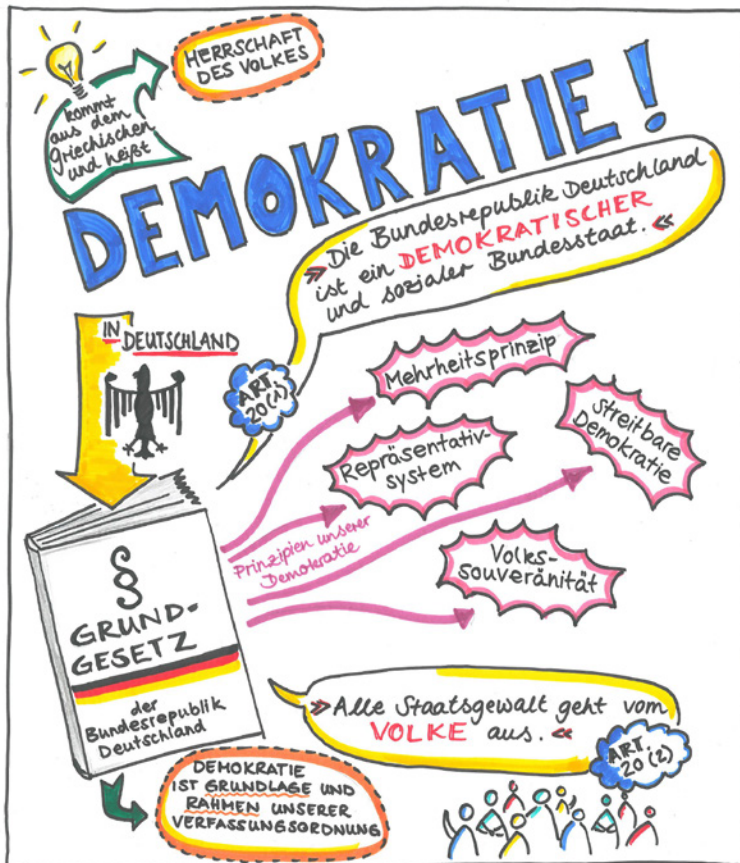 kommt
aus dem
Griechischen
und heißt
HERRSCHAFT
DES VOLKES
DEMOKRATIE!
»Die Bundesrepublik Deutschland
ist ein DEMOKRATISCHER
und sozialer Bundesstaat.«
ART.
20(1)
IN
DEUTSCHLAND
§
GRUND-
GESETZ
der
Bundesrepublik
Deutschland
Prinzipien unserer
Demokratie
Mehrheitsprinzip
Repräsentativ-
system
streitbare
Demokratie
Volks-
souveränität
»Alle Staatsgewalt geht vom
VOLKE aus.«
ART.
20 (2)
DEMOKRATIE
IST GRUNDLAGE UND
RAHMEN UNSERER
VERFASSUNGSORDNUNG